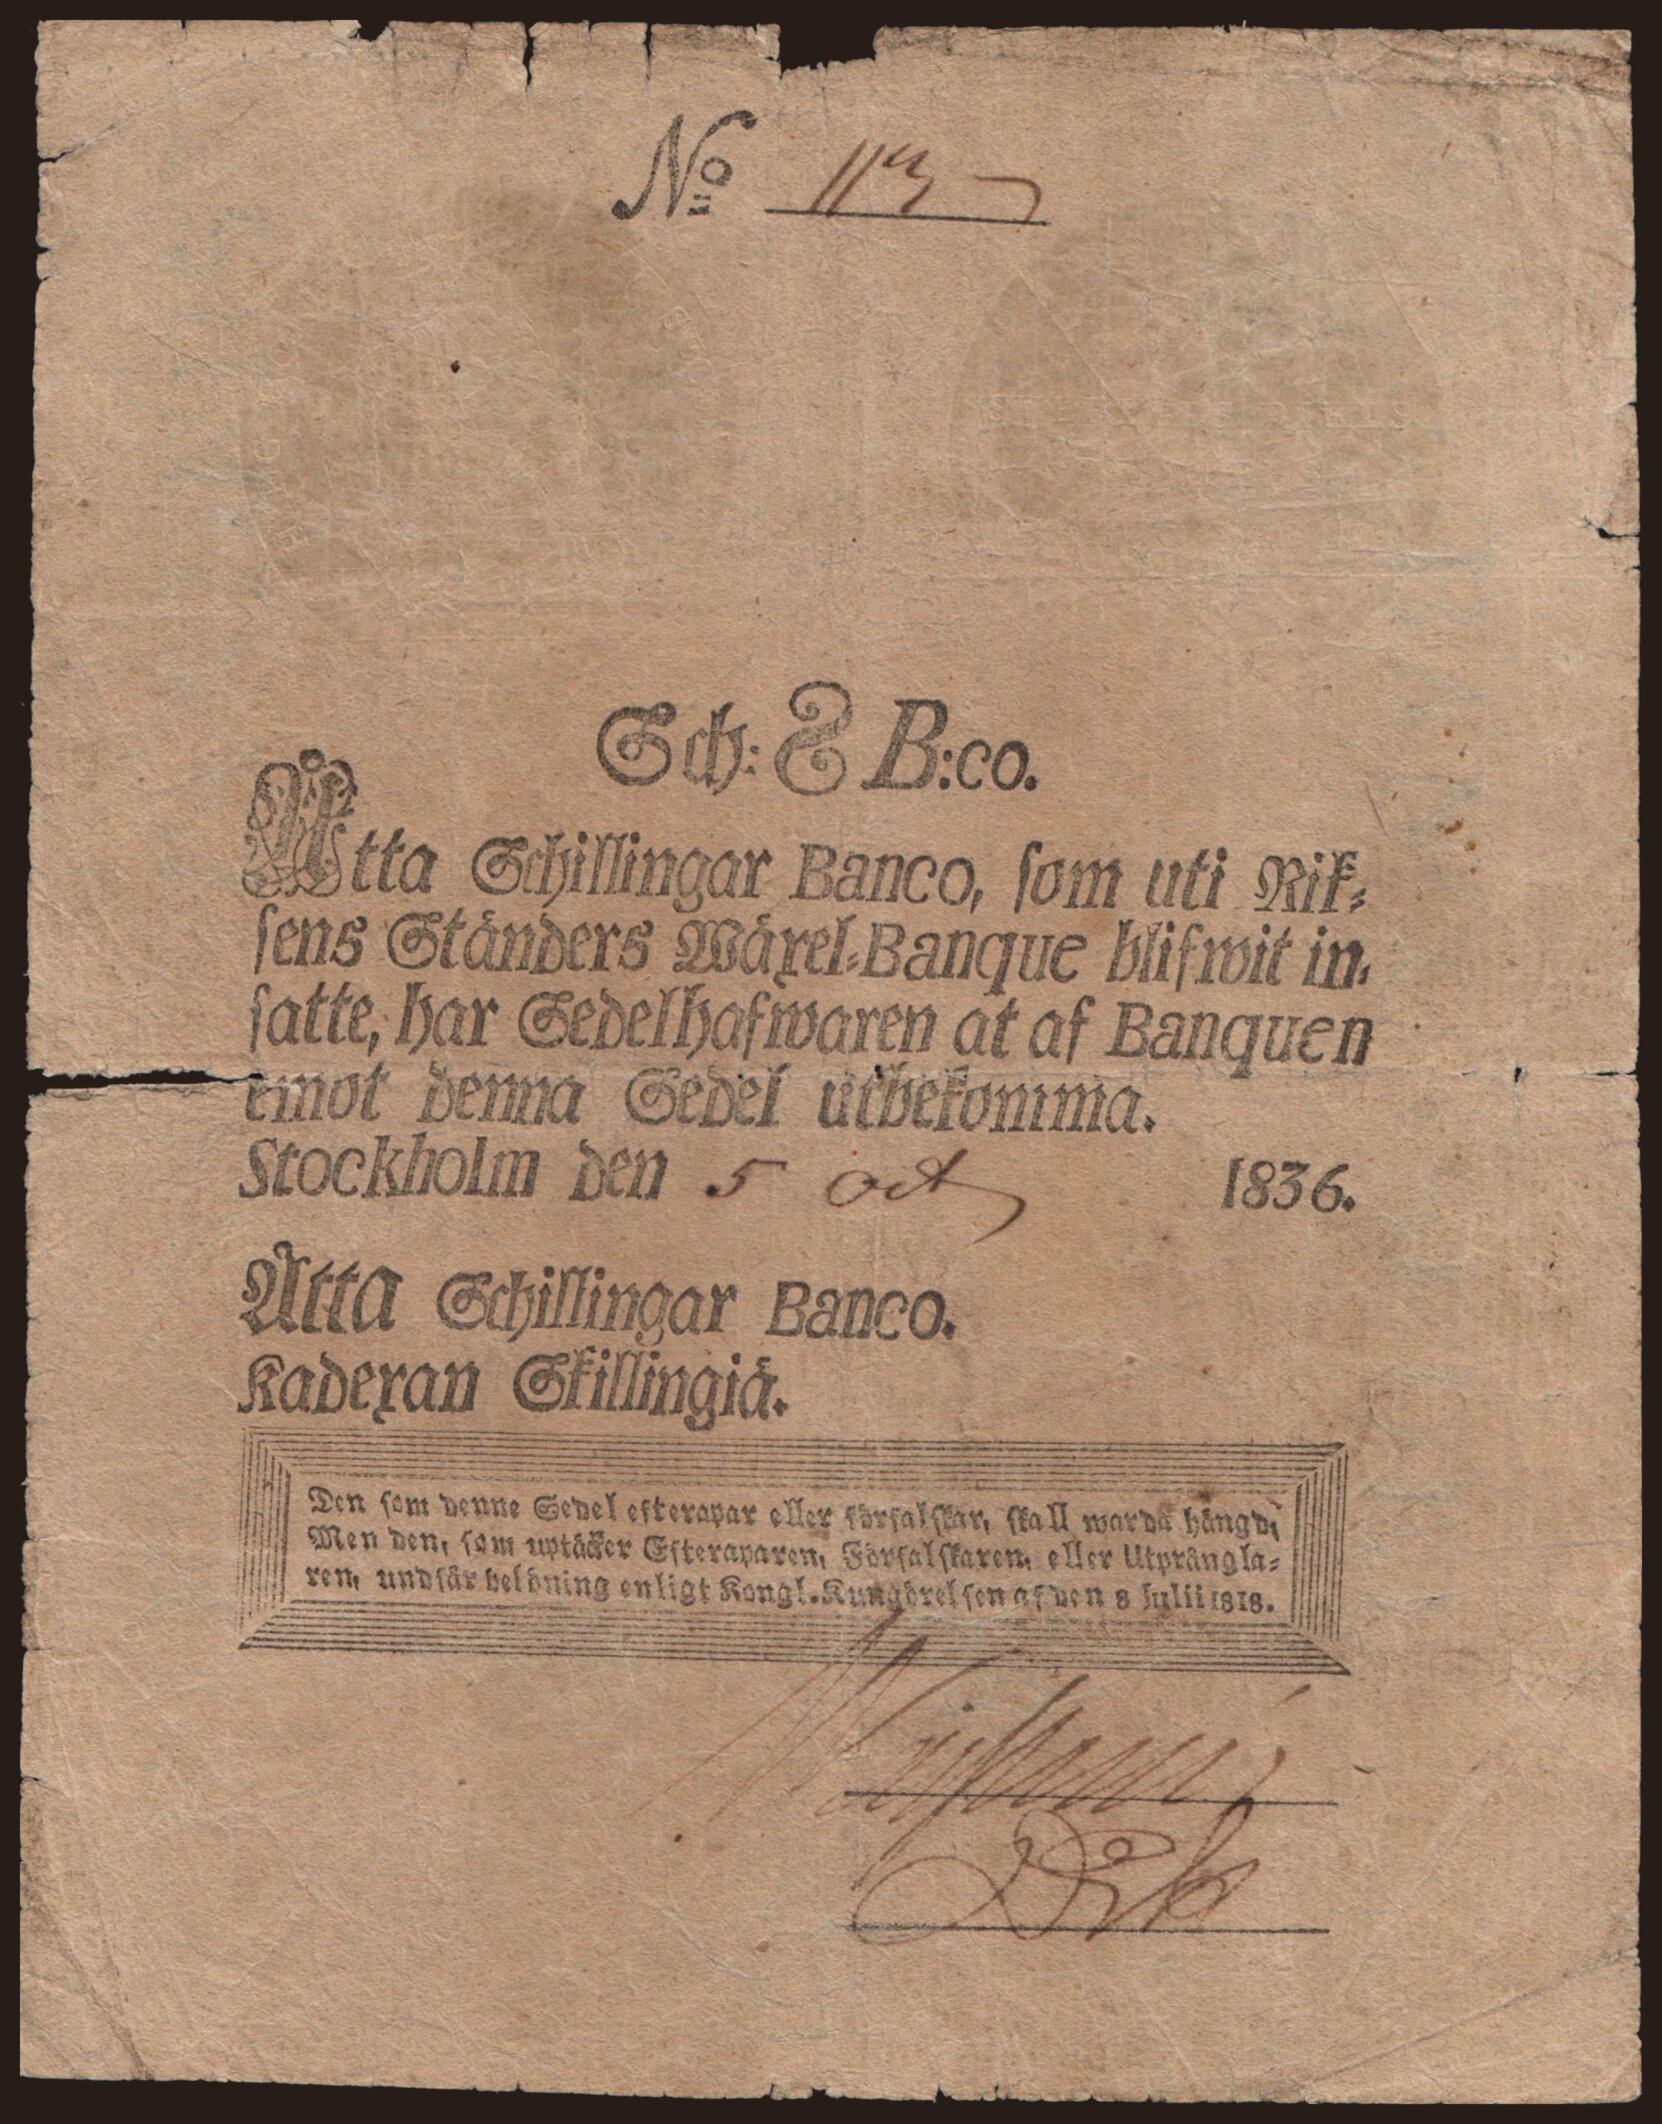 No 113
Sch: 8 B:co.
Åtta Schillingar Banco, som uti Rik-
sens Ständers Wäxel-Banque blifwit in-
satte, har Sedelhafwaren at af Banquen
emot denna Sedel utbekomma.
Stockholm den 5 oct 1836.
Åtta Schillingar Banco.
Kadexan Skillingiä.
Den som denne Sedel efterapar eller förfalskar, skall warda hängd;
Men den, som uptäcker Efteraparen, Förfalskaren, eller Utprångla-
ren, undfår belöning enligt Kongl. Kungörelsen af den 8 Julii 1818.